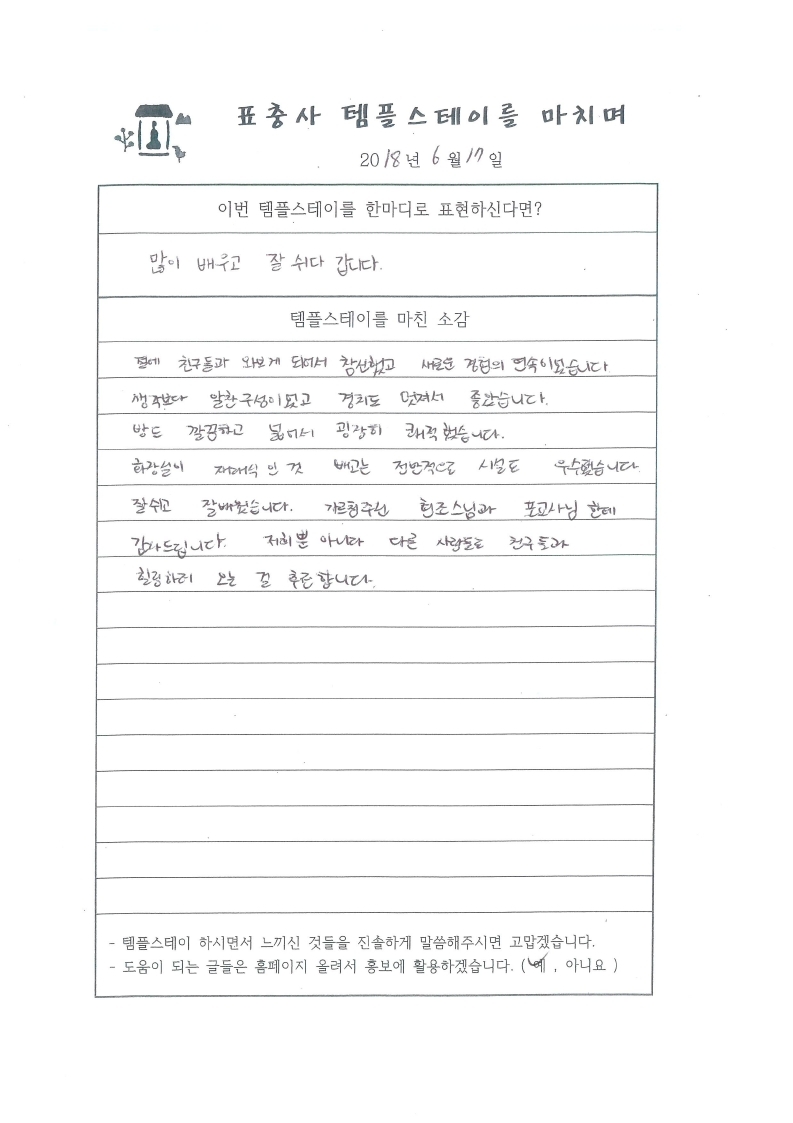 표충사 템플스테이를 마치며
2018년 6월 17일
이번 템플스테이를 한마디로 표현하신다면?
많이 배우고 잘 쉬다 갑니다.
템플스테이를 마친 소감
절에 친구들과 와보게 되어서 참신했고 새로운 경험의 연속이었습니다
생각보다 알찬구성이었고 경치도 멋져서 좋았습니다.
방도 깔끔하고 넓어서 굉장히 쾌적했습니다.
화장실이 재래식 인 것 빼고는 전반적으로 시설도 우수했습니다
잘쉬고 잘배웠습니다. 가르쳐주신 스님과 포교사님 한테
감사드립니다. 저희뿐 아니라 다른 사람들도 친구들과
힐링하러 오는 걸 추천합니다.
- 템플스테이 하시면서 느끼신 것들을 진솔하게 말씀해주시면 고맙겠습니다.
- 도움이 되는 글들은 홈페이지 올려서 홍보에 활용하겠습니다. ( 예 , 아니요 )